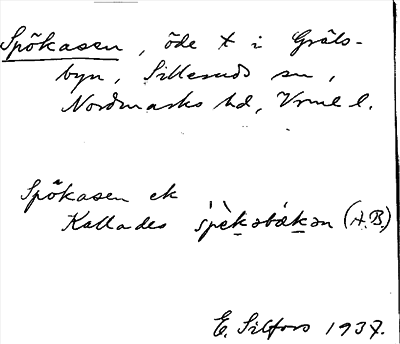 Spökasen, öde t i Gräls-
byn, Silleruds sn,
Nordmarks hd, Vrml l.
Spökasen ek
Kallades spèkəbákən (A.B.)
E. Silfors 1937.